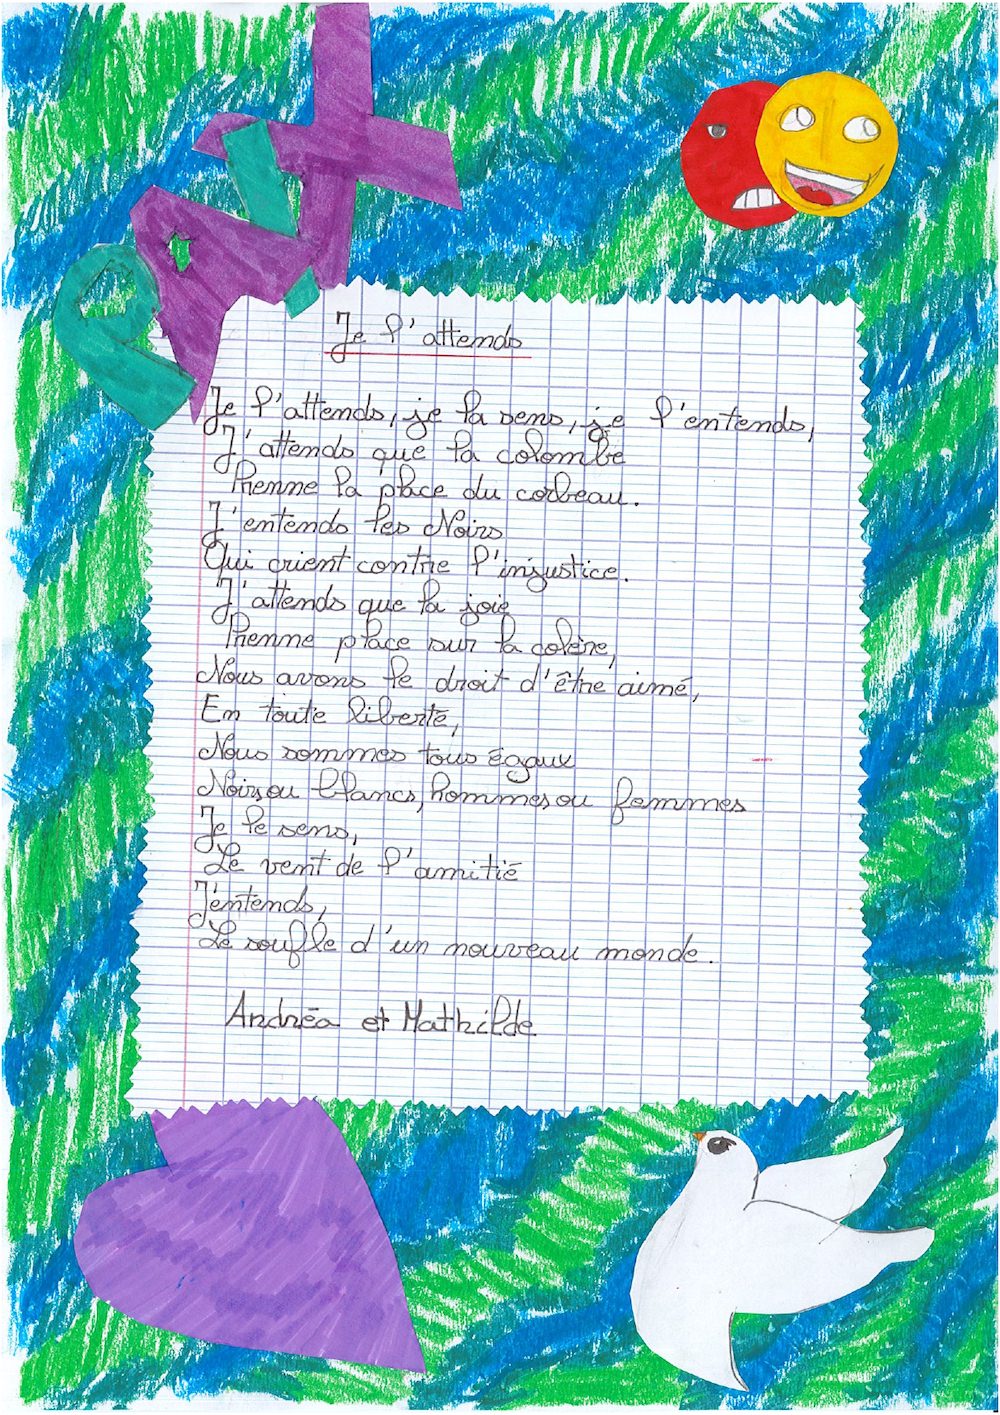 PAix
Je l'attends
Je l'attends, je la sens, je l'entends,
J'attends que la colombe
Prenne la place du corbeau.
J'entends les Noirs
Qui crient contre l'injustice.
J'attends que la joie
Prenne place sur la colère,
Nous avons le droit d'être aimé,
En toute liberté,
Nous sommes tous égaux
Noirs ou blancs, hommes ou femmes
Je le sens,
Le vent de l'amitié
J'entends,
Le soufle d'un nouveau monde.
Andréa et Mathilde